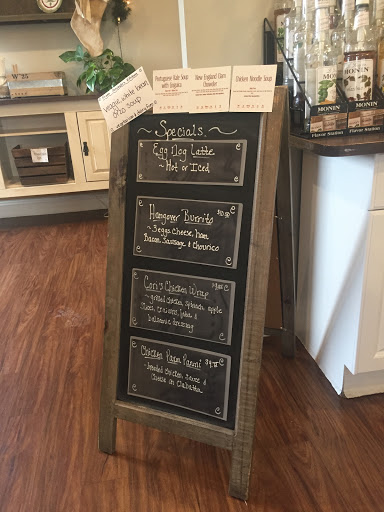 veggie, white bean,
orzo soup
Portuguese Kale Soup
with Linguica
New England Clam
Chowder
Chicken Noodle Soup
~ Specials ~
Egg Nog Latte
~ Hot or Iced
Hangover Burrito
~ 3 eggs cheese, ham,
Bacon, Sausage & Chourico
Cori's Chicken Wrap
~ grilled chicken, spinach, apple
slices, craisins, feta, &
balsamic dressing
Chicken Parm Panini
~ breaded chicken, sauce &
cheese on Ciabatta
MONIN
MONIN
MONIN
Flavor Station
Flavor Station